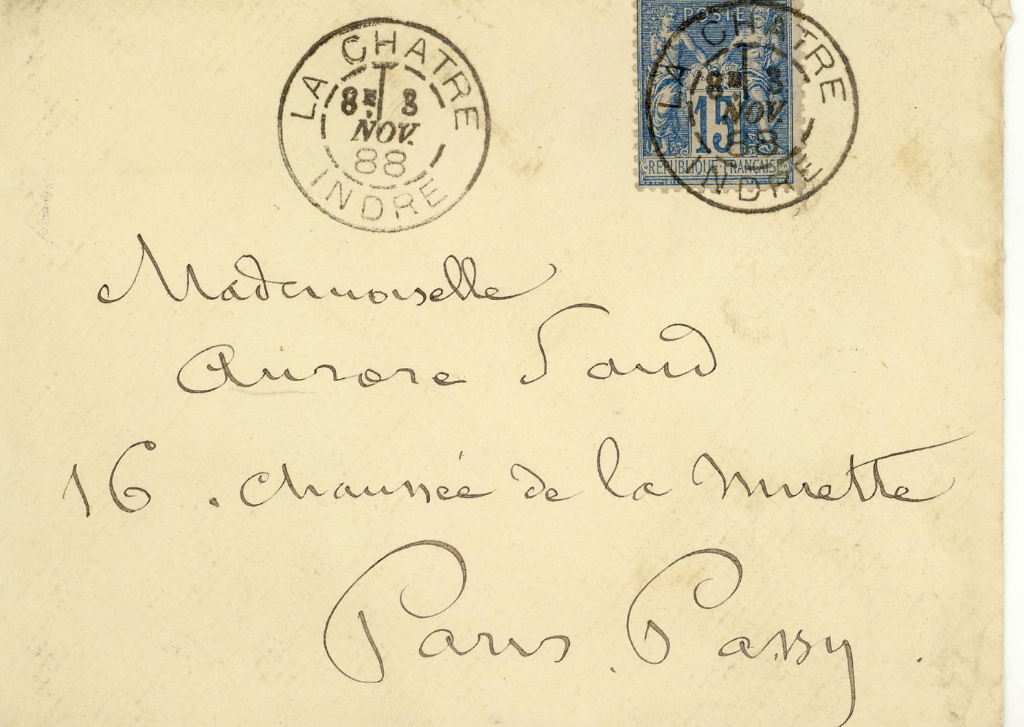 LA CHATRE
8E 3
NOV.
88
INDRE
POSTE
15
REPUBLIQUE FRANÇAISE
LA CHATRE
8E 3
NOV.
88
INDRE
Mademoiselle
Aurore Sand
16. chaussée de la muette
Paris. Passy.